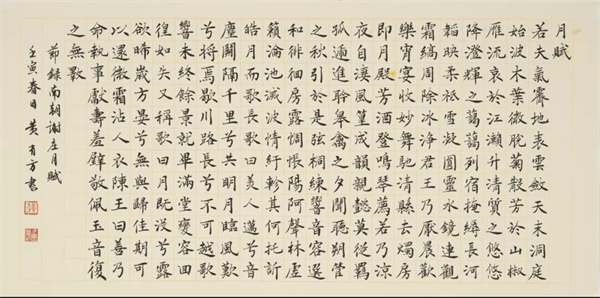 月賦
若夫氣霽地表雲斂天末洞庭
始波木葉微脫菊散芳於山椒
雁流哀於江瀨升清質之悠悠
降澄輝之藹藹列宿掩縟長河
韜映柔祗雪凝圓靈水鏡連觀
霜縞周除冰淨君王乃厭晨歡
樂宵宴收妙舞馳清縣去燭房
即月殿芳酒登鳴琴薦若乃涼
夜自淒風篁成韻親懿莫從羈
孤遞進聆皋禽之夕聞聽朔管
之秋引於是弦桐練響音容選
和徘徊房露惆悵陽阿聲林虛
籟淪池滅波情紆軫其何託訴
皓月而歌長歌曰美人邁兮音
塵闕隔千里兮共明月臨風歎
兮將焉歇川路長兮不可越歌
響未終餘景就畢滿堂變容回
徨如失又稱歌曰月既沒兮露
欲晞歲方晏兮無與歸佳期可
以還微霜沾人衣陳王曰善乃
命執事獻壽羞璧敬佩玉音復
之無斁
節錄南朝謝莊月賦
壬寅春日黃有方書